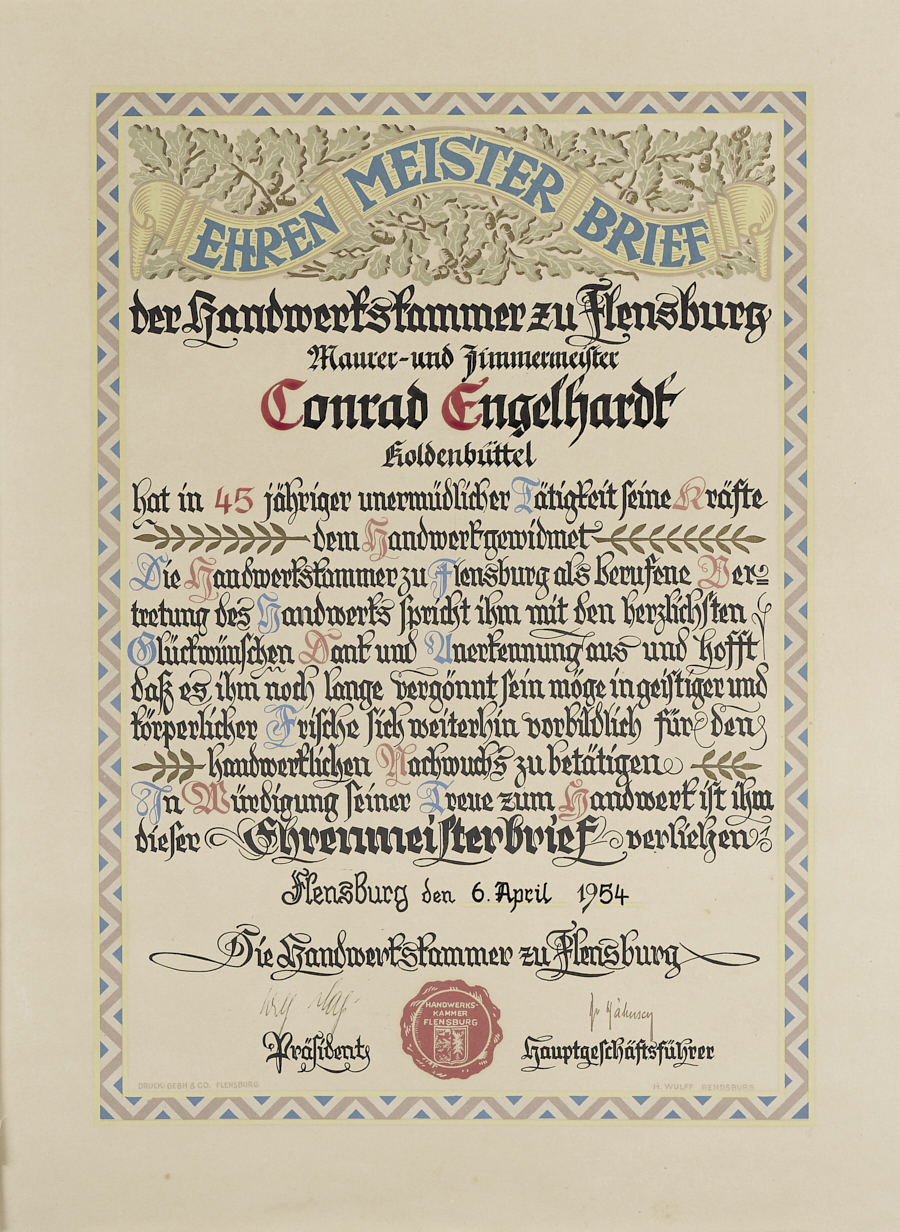 EHREN MEISTER BRIEF
der Handwerkskammer zu Flensburg
Maurer- und Zimmermeister
Conrad Engelhardt
Koldenbüttel
hat in 45 jähriger unermüdlicher Tätigkeit seine Kräfte
dem Handwerk gewidmet
Die Handwerkskammer zu Flensburg als berufene Ver=
tretung des Handwerks spricht ihm mit den herzlichsten
Glückwünschen Dank und Anerkennung aus und hofft
daß es ihm noch lange vergönnt sein möge in geistiger und
körperlicher Frische sich weiterhin vorbildlich für den
handwerklichen Nachwuchs zu betätigen
In Würdigung seiner Treue zum Handwerk ist ihm
dieser Ehrenmeisterbrief verliehen
Flensburg den 6. April 1954
Die Handwerkskammer zu Flensburg
HANDWERKS-
KAMMER
FLENSBURG
Präsident Hauptgeschäftsführer
DRUCK: GEBH & CO. FLENSBURG H. WULFF RENDSBURG